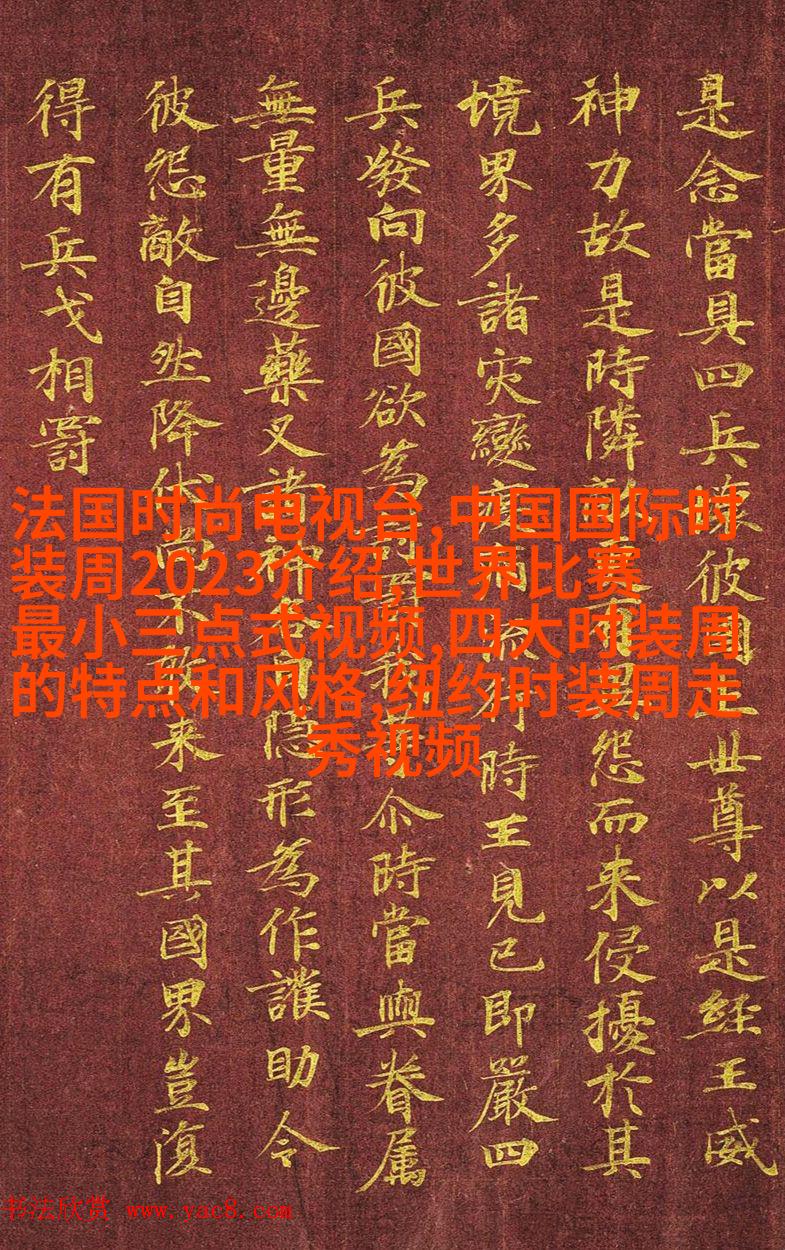 是念當具四兵壞彼國土世尊以是經王威
神力故是時隣敵更有異怨而来侵擾於其
境界多諸灾變疫病流行時王見已即嚴四
兵發向彼國欲為討罰我等尒時當與眷属
無量無邊藥叉諸神各自隱形為作護助令
彼怨敵自然降伏尚不敢来至其國界豈復
得有兵戈相罸
法国时尚电视台,中国国际时
装周2023介绍,世界比赛
最小三点式视频,四大时装周
的特点和风格,纽约时装周走
秀视频
书法欣赏 www.yac8.com